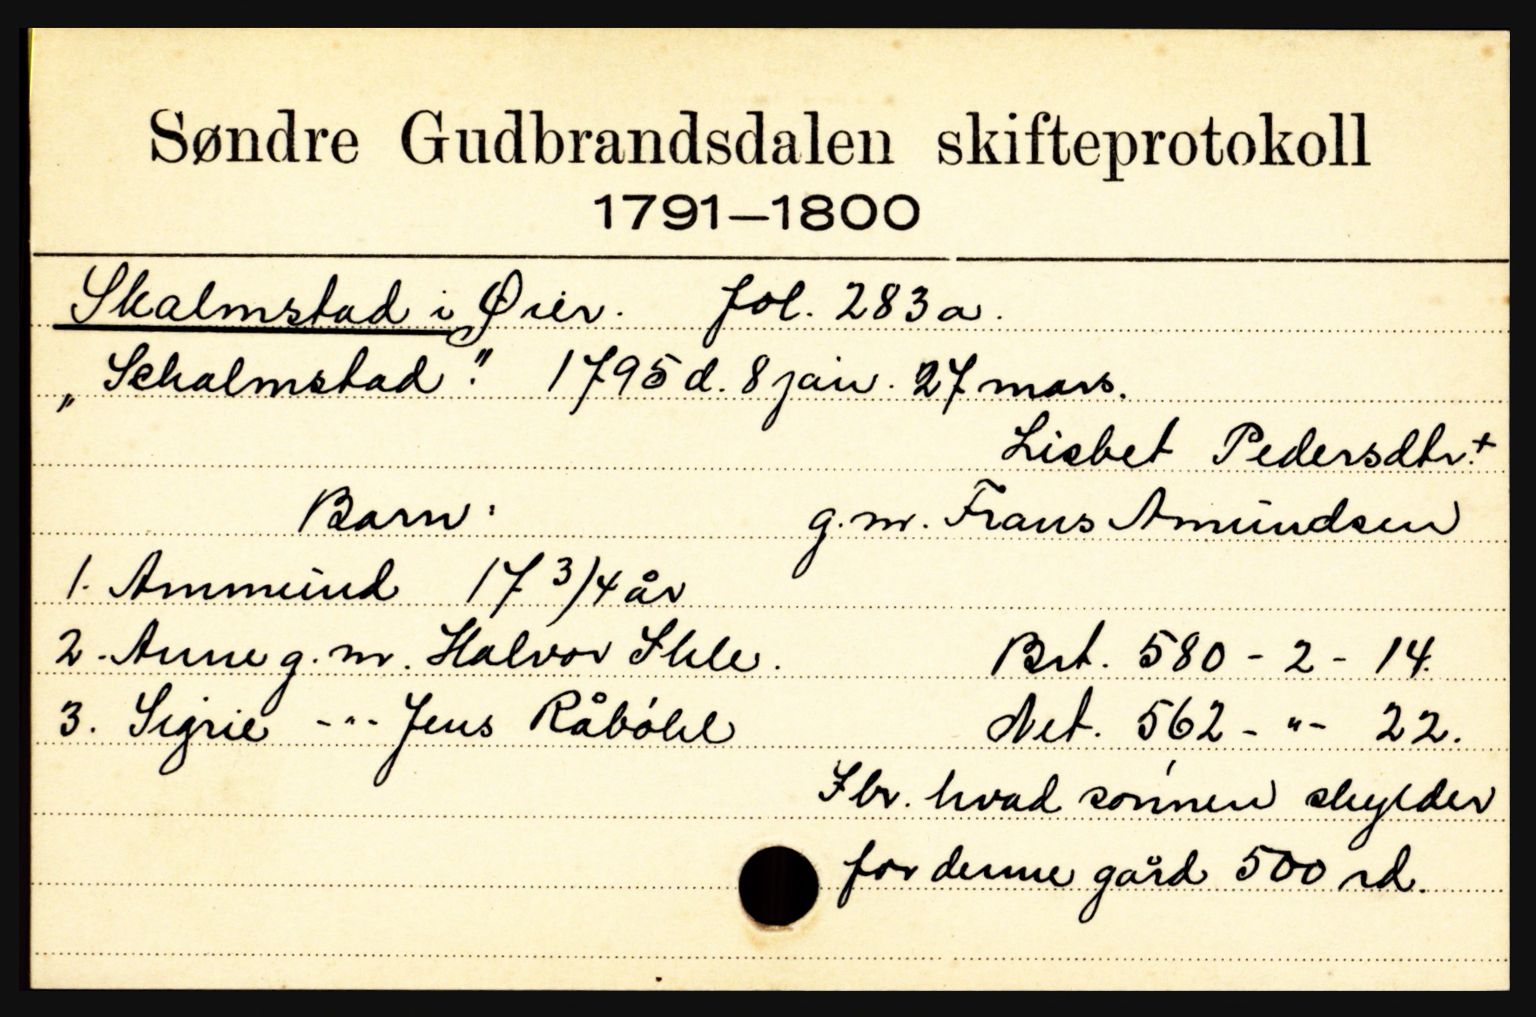 Søndre Gudbrandsdalen skifteprotokoll
1791—1800
Skalmstad i Øier. fol. 283a.
„Schalmstad". 1795 d. 8 jan. 27 mars.
Lisbet Pedersdtr. +
Barn: g.m. Frans Amundsen
1. Ammund 17 3/4 år
2. Anne g.m. Halvor Skle. Brt. 580 - 2 - 14.
3. Sigrie -"- Jens Råbøhl Net. 562 - "- 22.
Ibr. hvad sønnen skylder
for denne gård 500 rd.